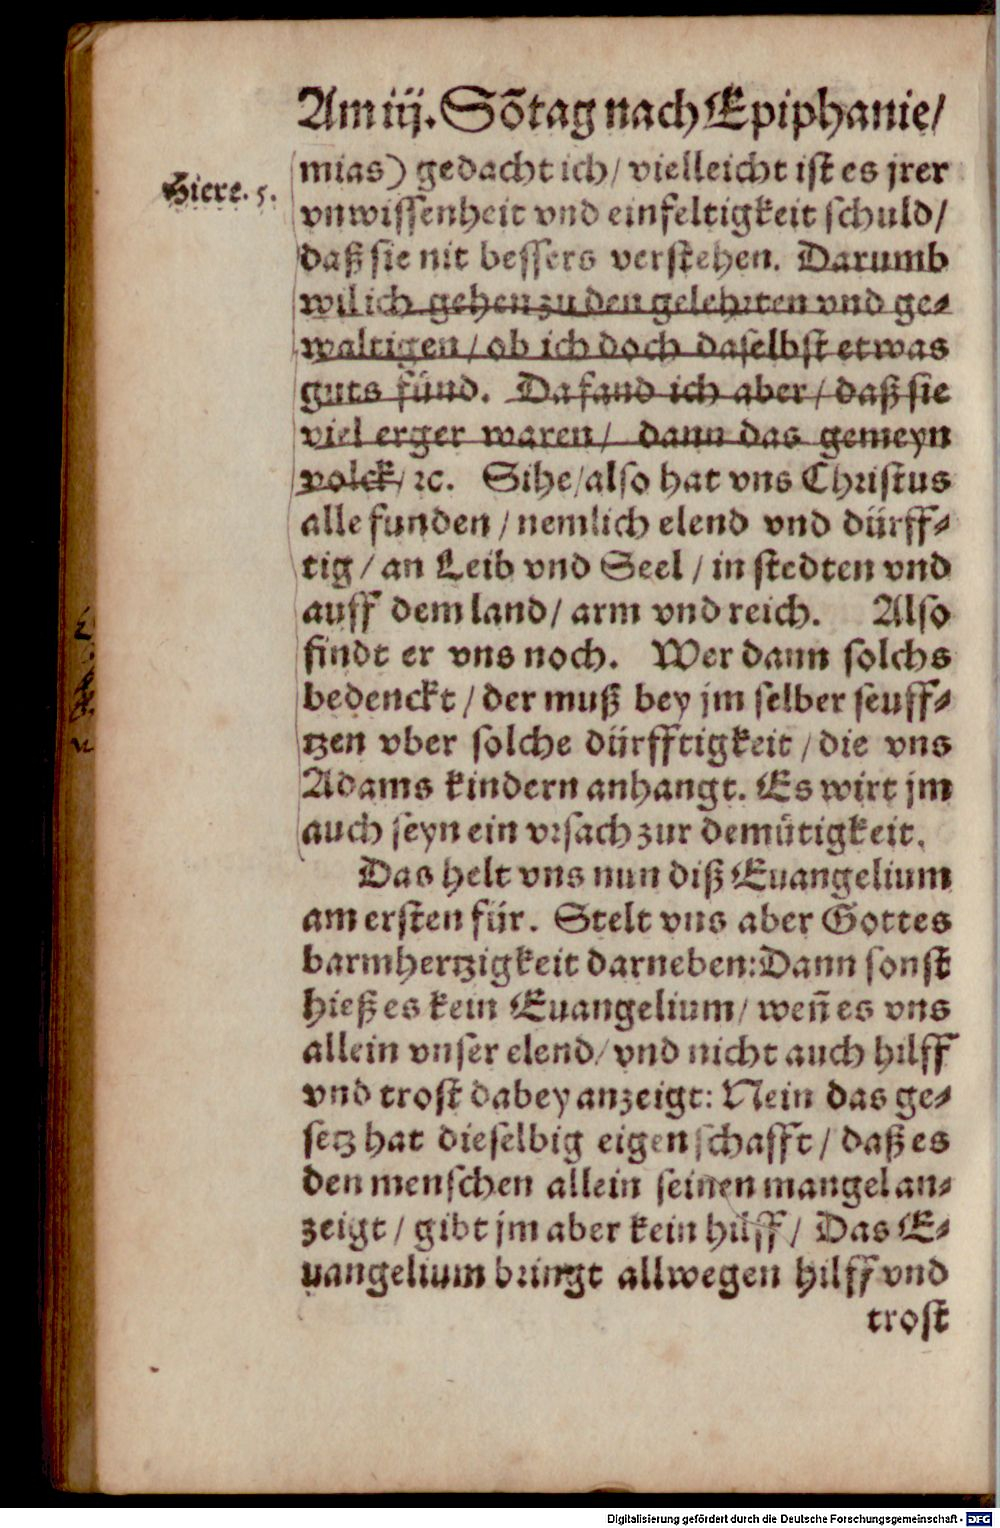 Am iij. Sõtag nach Epiphanie/
Hiere. 5.
mias) gedacht ich/ vielleicht ist es jrer
vnwissenheit vnd einfeltigkeit schuld/
daß sie nit bessers verstehen. Darumb
wil ich gehen zu den gelehrten vnd ge-
waltigen/ ob ich doch daselbst etwas
guts fünd. Da fand ich aber/ daß sie
viel erger waren/ dann das gemeyn
volck/ ꝛc. Sihe/ also hat vns Christus
alle funden/ nemlich elend vnd dürff-
tig/ an Leib vnd Seel/ in stedten vnd
auff dem land/ arm vnd reich. Also
findt er vns noch. Wer dann solchs
bedenckt/ der muß bey jm selber seuff-
tzen vber solche dürfftigkeit/ die vns
Adams kindern anhangt. Es wirt jm
auch seyn ein vrsach zur demütigkeit.
Das helt vns nun diß Euangelium
am ersten für. Stelt vns aber Gottes
barmhertzigkeit darneben: Dann sonst
hieß es kein Euangelium/ weñ es vns
allein vnser elend/ vnd nicht auch hilff
vnd trost dabey anzeigt: Nein das ge-
setz hat dieselbig eigenschafft/ daß es
den menschen allein seinen mangel an-
zeigt/ gibt jm aber kein hilff/ Das E-
uangelium bringt allwegen hilff vnd
trost
Digitalisierung gefördert durch die Deutsche Forschungsgemeinschaft - DFG